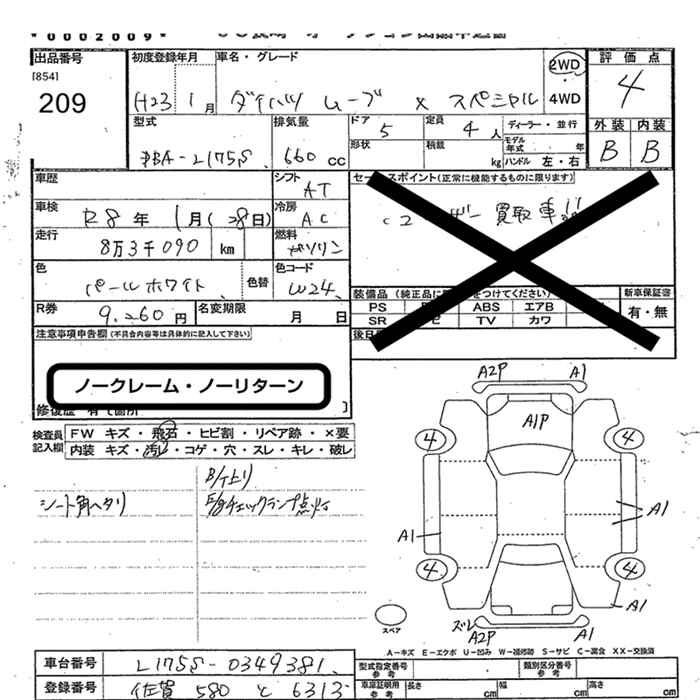 *0002009*
出品番号
[854]
209
初度登録年月
H23 1月
車名・グレード
ダイハツ ムーブ X スペシャル
2WD
4WD
評価点
4
外装 内装
B B
型式
DBA-L175S
排気量
660 CC
ドア
5
形状
定員
4人
積載
kg
ディーラー・並行
モデル年式 年
ハンドル 左・右
車歴
シフト
AT
車検
R8年 1月(28日)
冷房
AC
走行
8万3千090 km
燃料
ガソリン
色
パールホワイト
色替
色コード
W24
R券
9,260円
名変期限
月 日
セールスポイント(正常に機能するものに限ります)
買取車!!
装備品(純正品に をつけてください)
PS ABS エアB
SR TV カワ
新車保証書
有・無
後日
注意事項申告欄(不具合内容等は具体的に記入して下さい)
ノークレーム・ノーリターン
修復歴 有( 箇所 )
検査員記入欄
FW キズ・飛石・ヒビ割・リペア跡・×要
内装 キズ・汚れ・コゲ・穴・スレ・キレ・破レ
シート角ヘタリ
E/gチェックランプ点灯
A2P A1
A1P
4 4
A1
A1
4 4
A1
ズレ
A2P A1
スペア
A-キズ E-エクボ U-凹み W-補修跡 S-サビ C-腐食 XX-交換済
車台番号
L175S-0349381
登録番号
佐賀 580 と 6313
型式指定番号
参考
類別区分番号
参考
車庫証明用
参考
長さ cm
幅 cm
高さ cm